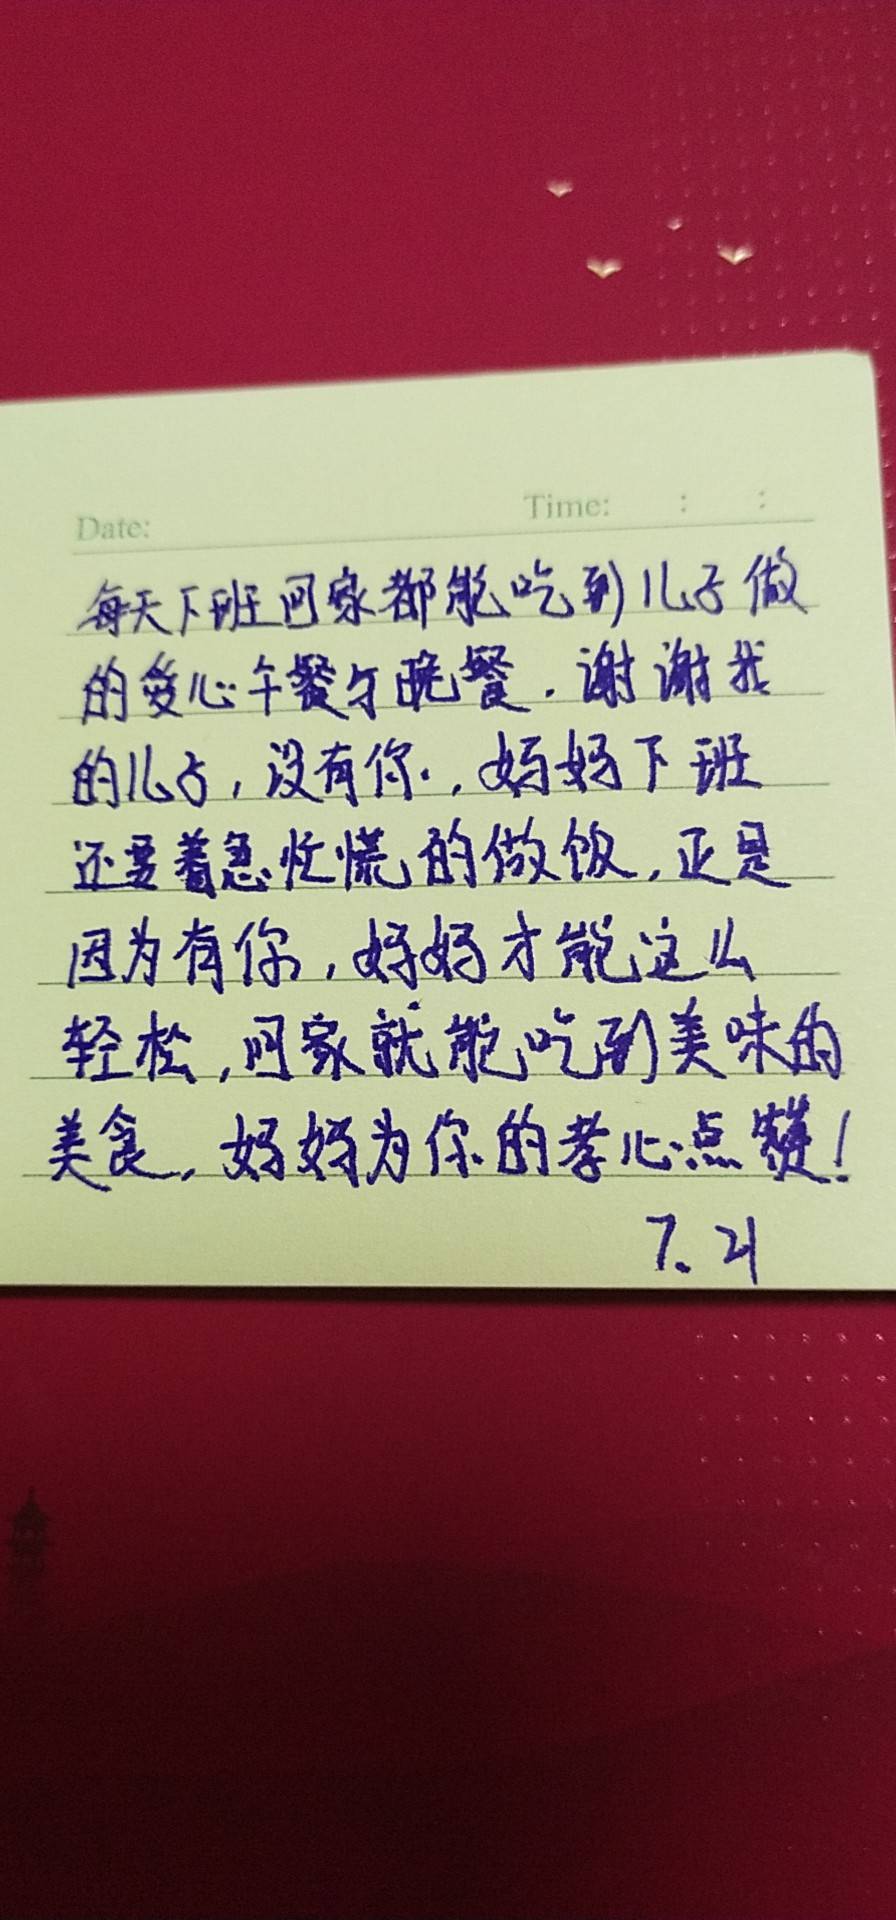 Date: Time: : :
每天下班回家都能吃到儿子做
的爱心午餐与晚餐.谢谢我
的儿子,没有你.,妈妈下班
还要着急忙慌的做饭,正是
因为有你,妈妈才能这么
轻松,回家就能吃到美味的
美食,妈妈为你的孝心点赞!
7.21